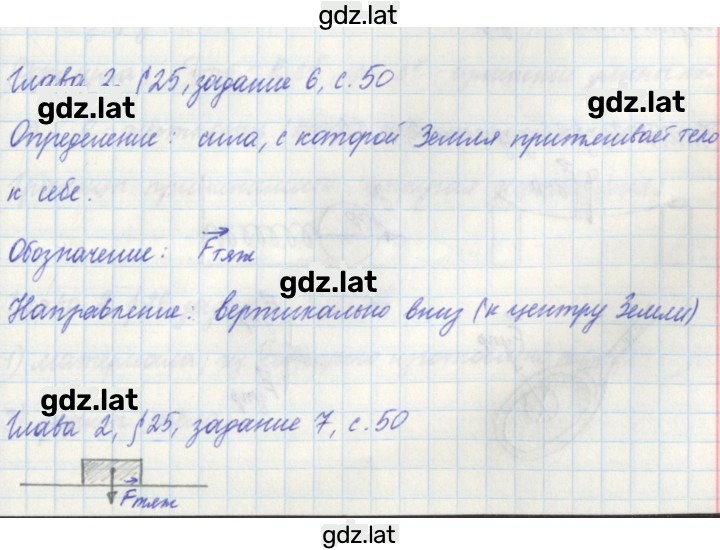 gdz.lat
Глава 2, §25, задание 6, с. 50
gdz.lat
gdz.lat
Определение: сила, с которой Земля притягивает тело
к себе.
Обозначение: Fтяж
gdz.lat
Направление: вертикально вниз (к центру Земли)
gdz.lat
Глава 2, §25, задание 7, с. 50
Fтяж
gdz.lat